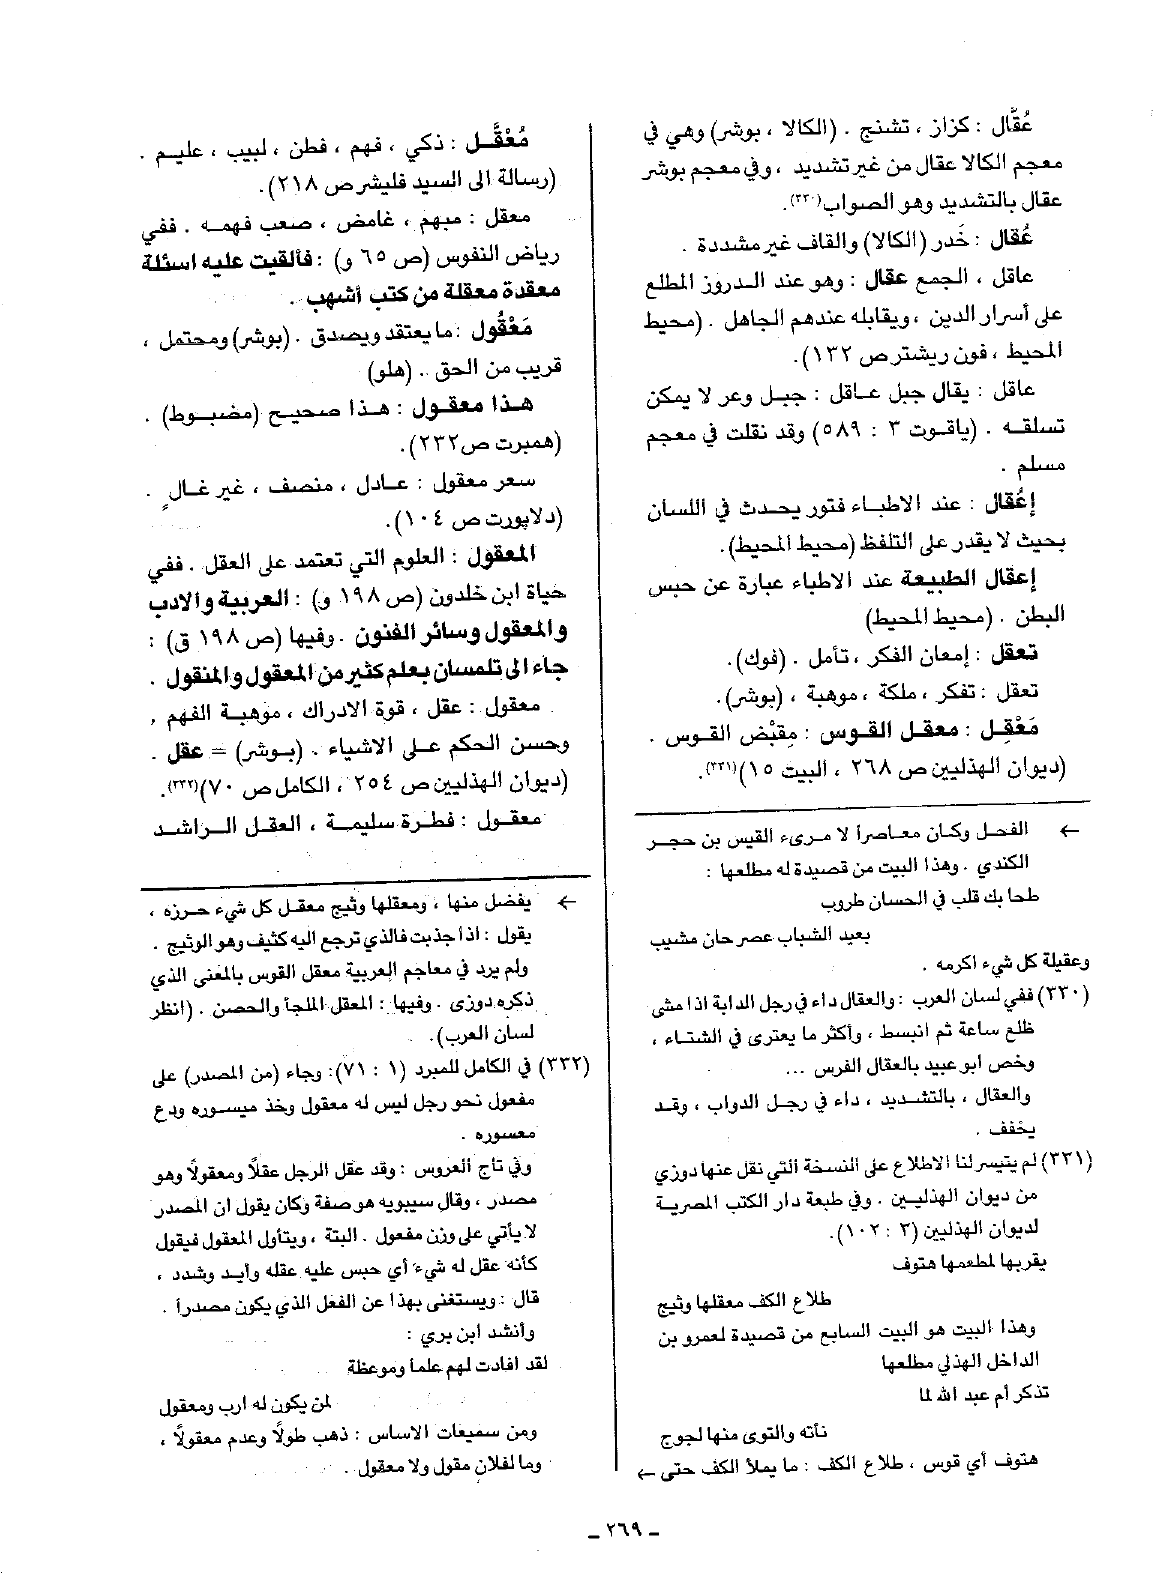 عُقَّال : كزاز ، تشنج . (الكالا ، بوشر) وهي في
معجم الكالا عقال من غير تشديد ، وفي معجم بوشر
عقال بالتشديد وهو الصواب(٣٣٠).
عُقال : خَدر (الكالا) والقاف غير مشددة .
عاقل ، الجمع عقال : وهو عند الدروز المطلع
على أسرار الدين ، ويقابله عندهم الجاهل . (محيط
المحيط ، فون ريشتر ص ١٣٢).
عاقل : يقال جبل عاقل : جبل وعر لا يمكن
تسلقه . (ياقوت ٣ : ٥٨٩) وقد نقلت في معجم
مسلم .
إعْقال : عند الاطباء فتور يحدث في اللسان
بحيث لا يقدر على التلفظ (محيط المحيط).
إعقال الطبيعة عند الاطباء عبارة عن حبس
البطن . (محيط المحيط)
تعقل : إمعان الفكر ، تأمل . (فوك).
تعقل : تفكر ، ملكة ، موهبة ، (بوشر).
مَعْقِل : معقل القوس : مِقبْض القوس .
(ديوان الهذليين ص ٢٦٨ ، البيت ١٥)(٣٣١).
← الفحل وكان معاصراً لا مرىء القيس بن حجر
الكندي . وهذا البيت من قصيدة له مطلعها :
طحا بك قلب في الحسان طروب
بعيد الشباب عصر حان مشيب
وعقيلة كل شيء اكرمه .
(٣٣٠) ففي لسان العرب : والعقال داء في رجل الدابة اذا مشى
ظلع ساعة ثم انبسط ، وأكثر ما يعترى في الشتاء ،
وخص ابو عبيد بالعقال الفرس ...
والعقال ، بالتشديد ، داء في رجل الدواب ، وقد
يخفف .
(٣٣١) لم يتيسر لنا الاطلاع على النسخة التي نقل عنها دوزي
من ديوان الهذليين . وفي طبعة دار الكتب المصرية
لديوان الهذليين (٣ : ١٠٢).
يقربها لمطعمها هتوف
طلاع الكف معقلها وثيج
وهذا البيت هو البيت السابع من قصيدة لعمرو بن
الداخل الهذلي مطلعها
تذكر أم عبد الله لما
نأته والتوى منها لجوج
هتوف أي قوس ، طلاع الكف : ما يملأ الكف حتى ←
مُعْقَّل : ذكي ، فهم ، فطن ، لبيب ، عليم .
(رسالة الى السيد فليشر ص ٢١٨).
معقل : مبهم ، غامض ، صعب فهمه . ففي
رياض النفوس (ص ٦٥ و) : فألقيت عليه اسئلة
معقدة معقلة من كتب أشهب .
مَعْقُول : ما يعتقد ويصدق . (بوشر) ومحتمل ،
قريب من الحق . (هلو)
هذا معقول : هذا صحيح (مضبوط) .
(همبرت ص ٢٣٢).
سعر معقول : عادل ، منصف ، غير غالٍ .
(دلابورت ص ١٠٤).
المعقول : العلوم التي تعتمد على العقل . ففي
حياة ابن خلدون (ص ١٩٨ و) : العربية والادب
والمعقول وسائر الفنون . وفيها (ص ١٩٨ ق) :
جاء الى تلمسان بعلم كثير من المعقول والمنقول .
معقول : عقل ، قوة الادراك ، موهبة الفهم ,
وحسن الحكم على الاشياء . (بوشر) = عقل .
(ديوان الهذليين ص ٢٥٤ ، الكامل ص ٧٠)(٣٣٢).
معقول : فطرة سليمة ، العقل الراشد
← يفضل منها ، ومعقلها وثيج معقل كل شيء حرزه ،
يقول : اذا جذبت فالذي ترجع اليه كثيف وهو الوثيج .
ولم يرد في معاجم العربية معقل القوس بالمعنى الذي
ذكره دوزى . وفيها : المعقل الملجأ والحصن . (انظر
لسان العرب).
(٣٣٢) في الكامل للمبرد (١ : ٧١): وجاء (من المصدر) على
مفعول نحو رجل ليس له معقول وخذ ميسوره ودع
معسوره .
وفي تاج العروس : وقد عقل الرجل عقلاً ومعقولاً وهو
مصدر ، وقال سيبويه هو صفة وكان يقول ان المصدر
لا يأتي على وزن مفعول . البتة ، ويتأول المعقول فيقول
كأنه عقل له شيء أي حبس عليه عقله وأيد وشدد ،
قال : ويستغنى بهذا عن الفعل الذي يكون مصدراً .
وأنشد ابن بري :
لقد افادت لهم علما وموعظة
لمن يكون له ارب ومعقول
ومن سميعات الاساس : ذهب طولاً وعدم معقولاً ،
وما لفلان مقول ولا معقول .
ـ ٢٦٩ ـ